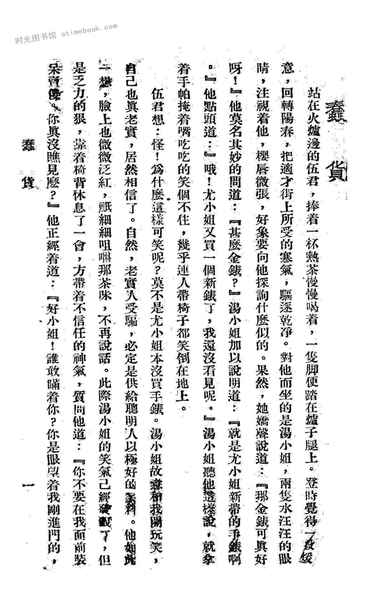 时光图书馆 etimebook.com
蠢貨
站在火爐邊的伍君，捧着一杯熟茶慢慢喝着，一隻脚便踏在爐子腿上。登時覺得一股煖
意，回轉陽春，把適才街上所受的寒氣，驅逐乾淨。對他而坐的是湯小姐，兩隻水汪汪的眼
睛，注視着他，櫻唇微張，好象要向他探詢什麼似的。果然，她嬌聲說道：『那金錶可真好
呀！』他莫名其妙的問道：『甚麼金錶？』湯小姐加以說明道：『就是尤小姐新帶的手錶啊
。』他點頭道：『哦！尤小姐又買一個新錶了，我還沒看見呢。』湯小姐聽他這樣說，就拿
着手帕掩着嘴吃吃的笑個不住，幾乎連人帶椅子都笑倒在地上。
伍君想：怪！爲什麼這樣可笑呢？莫不是尤小姐本沒買手錶。湯小姐故意和我開玩笑，
自己也真老實，居然相信了。自然，老實人受騙，必定是供給聰明人以極好的笑料。他如此
一想，臉上也微微泛紅，祇細細咀嚼那茶味，不再說話。此際湯小姐的笑氣已經發散了，但
是乏力的狠，靠着椅背休息了一會，方帶着不信任的神氣，質問他道：『你不要在我面前裝
呆賣傻。你真沒瞧見麼？』他正經着道：『好小姐！誰敢瞞着你？你是眼望着我剛進門的，
蠢貨
一